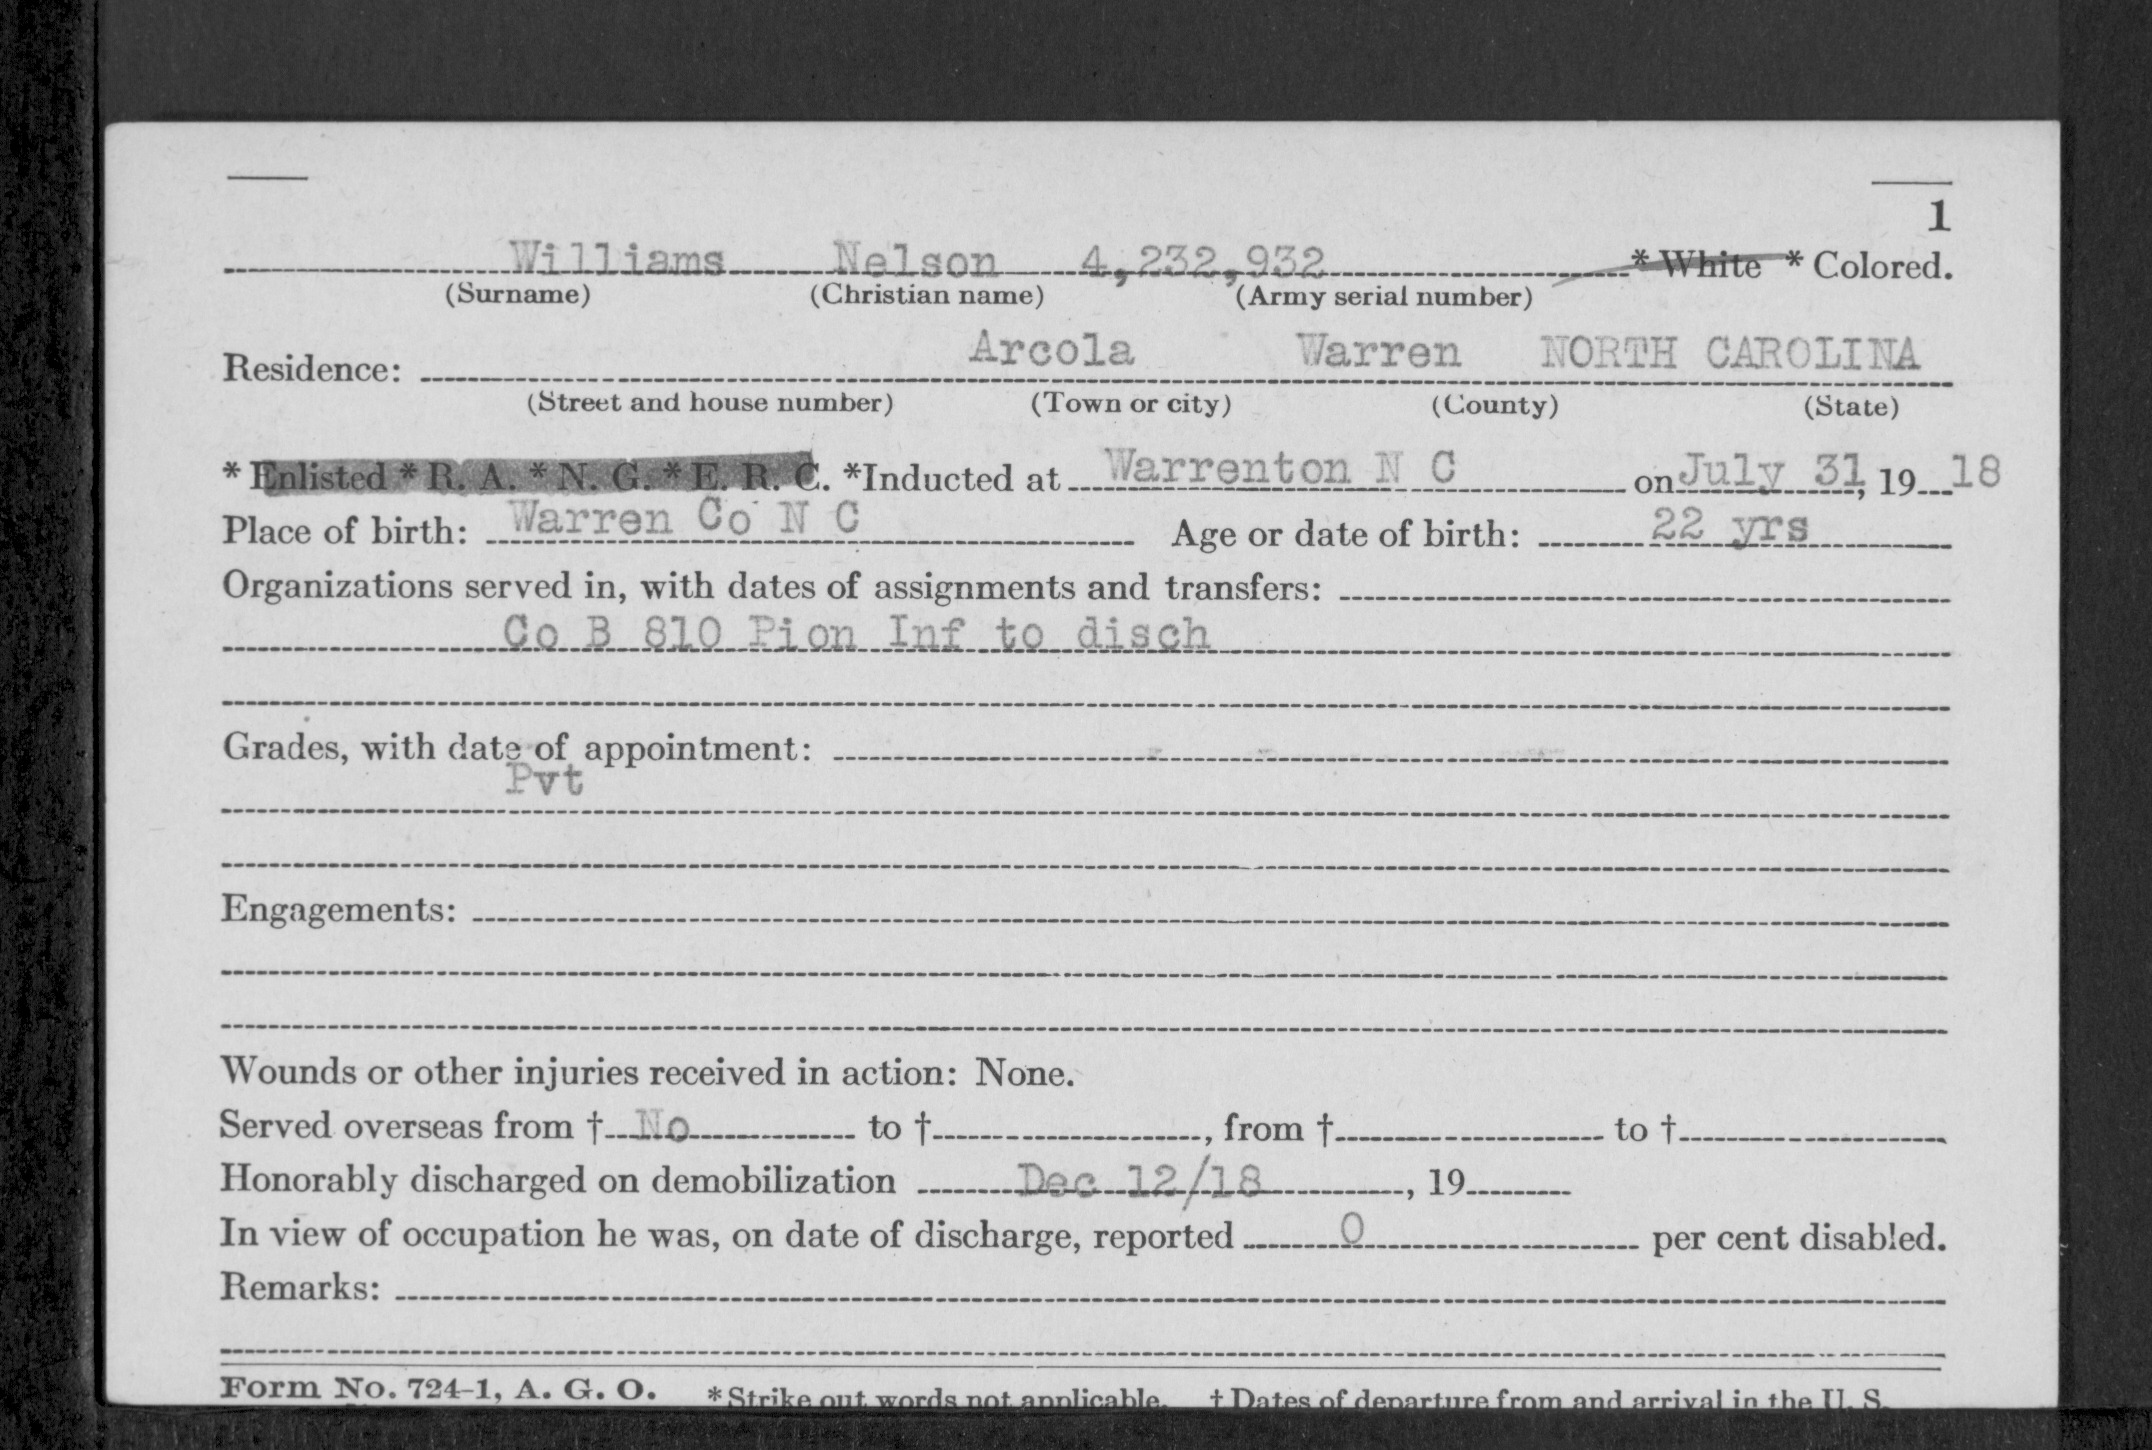 1
Williams Nelson 4,232,932 * White * Colored.
(Surname) (Christian name) (Army serial number)
Residence: Arcola Warren NORTH CAROLINA
(Street and house number) (Town or city) (County) (State)
* Enlisted * R. A. * N. G. * E. R. C. *Inducted at Warrenton N C on July 31, 19 18
Place of birth: Warren Co N C Age or date of birth: 22 yrs
Organizations served in, with dates of assignments and transfers:
Co B 810 Pion Inf to disch
Grades, with date of appointment:
Pvt
Engagements:
Wounds or other injuries received in action: None.
Served overseas from † No to †, from † to †
Honorably discharged on demobilization Dec 12/18, 19
In view of occupation he was, on date of discharge, reported 0 per cent disabled.
Remarks:
Form No. 724-1, A. G. O. * Strike out words not applicable. † Dates of departure from and arrival in the U. S.